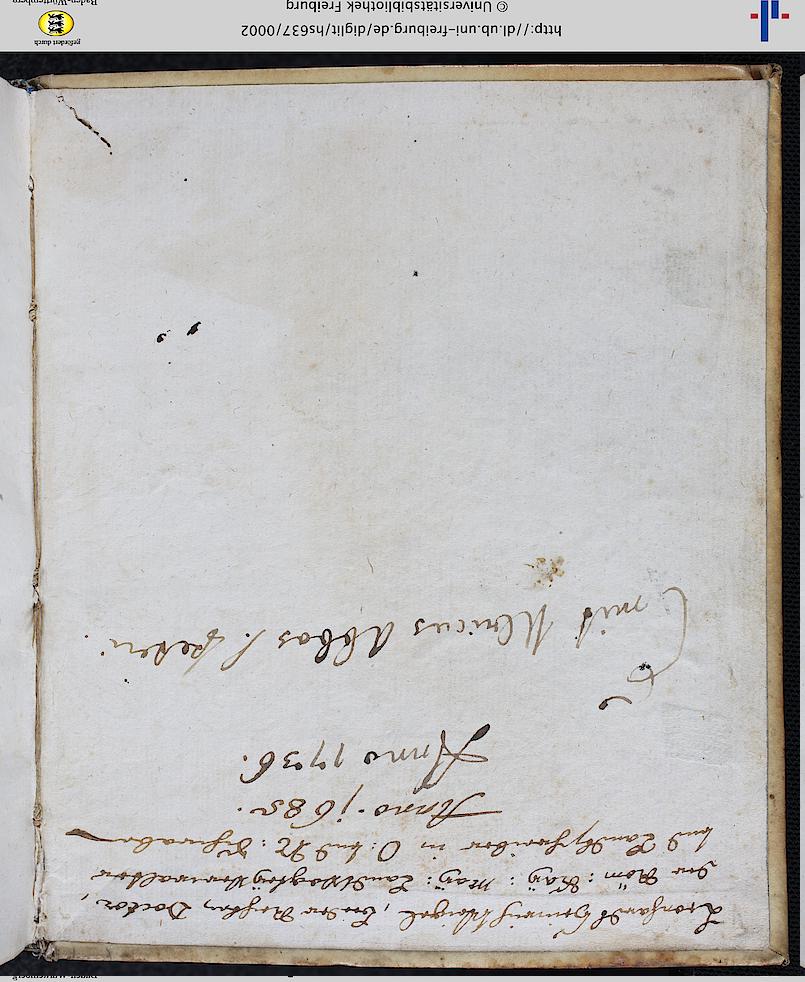 Leonhardt Heinrich Weigel, beeder Rechten Doctor,
der Röm: Kay: May: Landtvogtey Verwalter
und Landtschreiber in O: und N: Schwaben
Anno 1685.
Anno 1736.
Emit Ulricus Abbas S. Petri.
http://dl.ub.uni-freiburg.de/diglit/hs637/0002
© Universitätsbibliothek Freiburg
gefördert durch
Baden-Württemberg